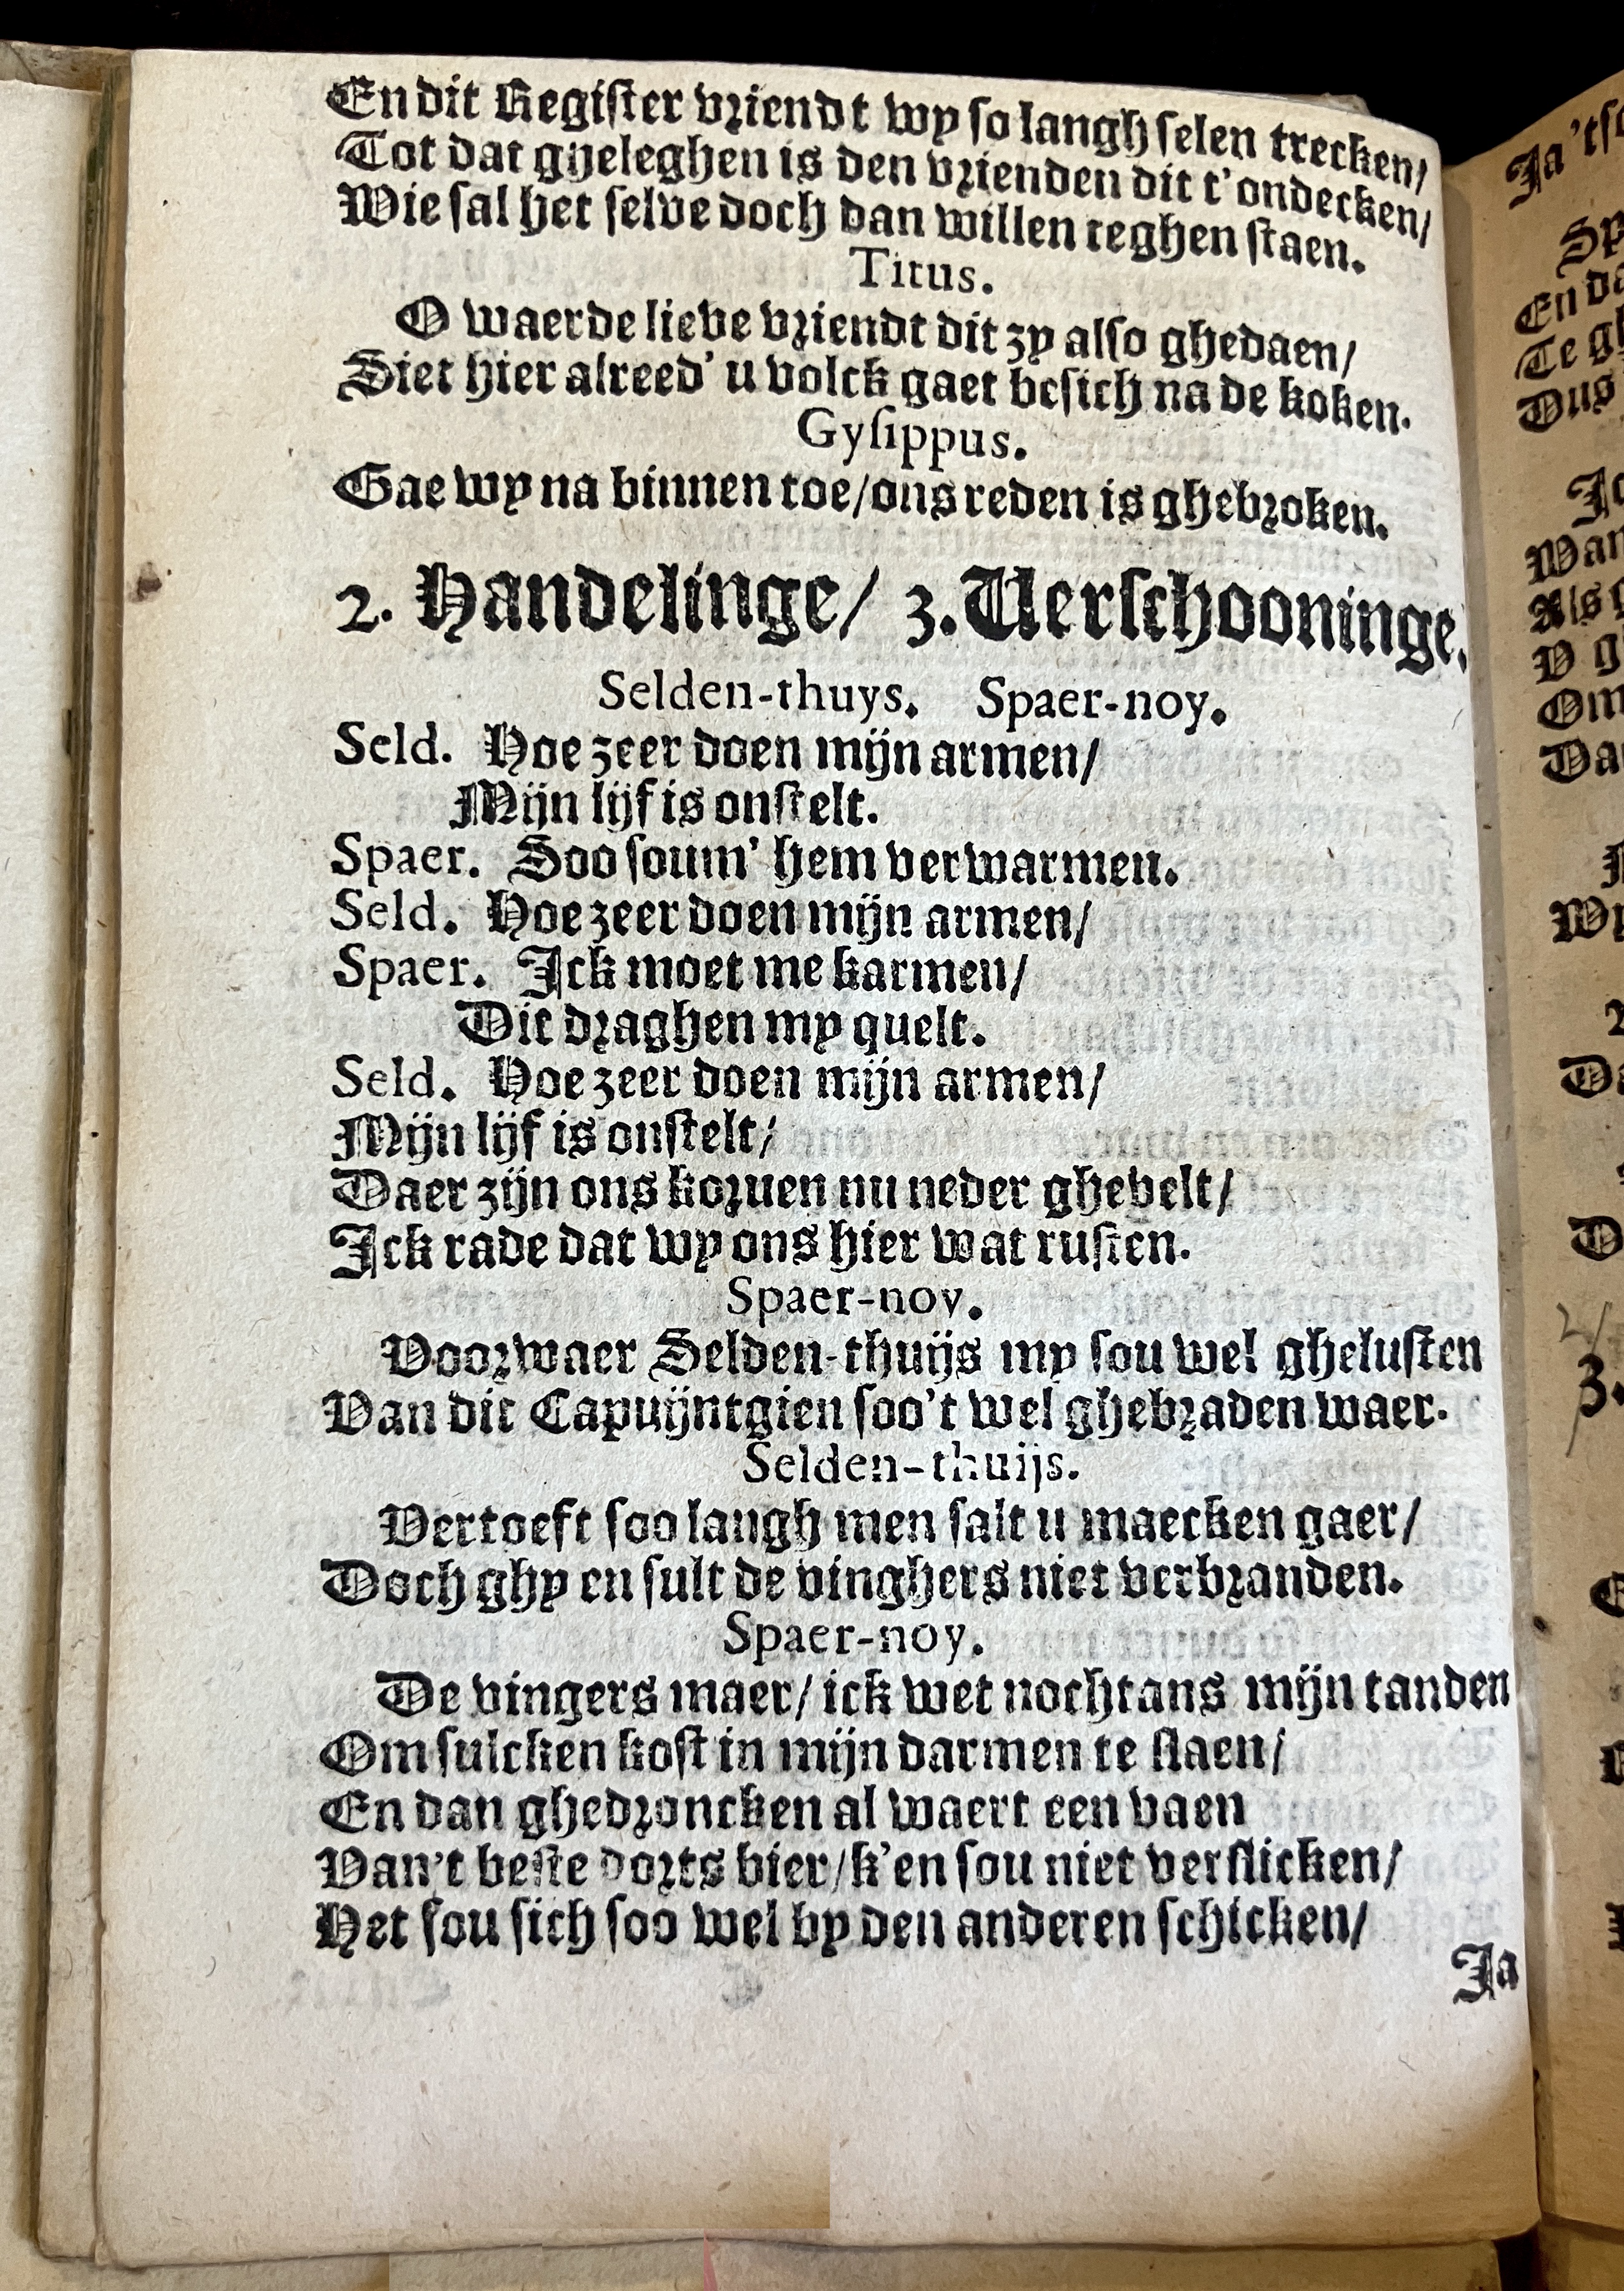 En dit Register vriendt wy so langh selen trecken/
Tot dat gheleghen is den vrienden dit t'ondecken/
Wie sal het selve doch dan willen teghen staen.
Titus.
O waerde lieve vriendt dit zy also ghedaen/
Siet hier alreed' u volck gaet besich na de koken.
Gysippus.
Gae wy na binnen toe/ons reden is ghebroken.
2. Handelinge/ 3. Verschooninge.
Selden-thuys. Spaer-noy.
Seld. Hoe zeer doen mijn armen/
Mijn lijf is onstelt.
Spaer. Soo soum' hem verwarmen.
Seld. Hoe zeer doen mijn armen/
Spaer. Ick moet me karmen/
Dit draghen my quelt.
Seld. Hoe zeer doen mijn armen/
Mijn lijf is onstelt/
Daer zijn ons korven nu neder ghevelt/
Ick rade dat wy ons hier wat rusten.
Spaer-noy.
Voorwaer Selden-thuijs my sou wel ghelusten
Van dit Capuijntgien soo't wel ghebraden waer.
Selden-thuijs.
Vertoeft soo langh men salt u maecken gaer/
Doch ghy en sult de vinghers niet verbranden.
Spaer-noy.
De vingers maer/ ick wet nochtans mijn tanden
Om sulcken kost in mijn darmen te slaen/
En dan ghedroncken al waert een vaen
Van't beste dorts bier/k'en sou niet verslicken/
Het sou sich soo wel by den anderen schicken/
Ja